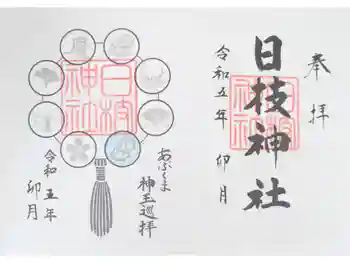 奉拝
日枝神社
日枝神社
令和五年 卯月
あぶくま
神玉巡拝
日枝神社
令和五年
卯月